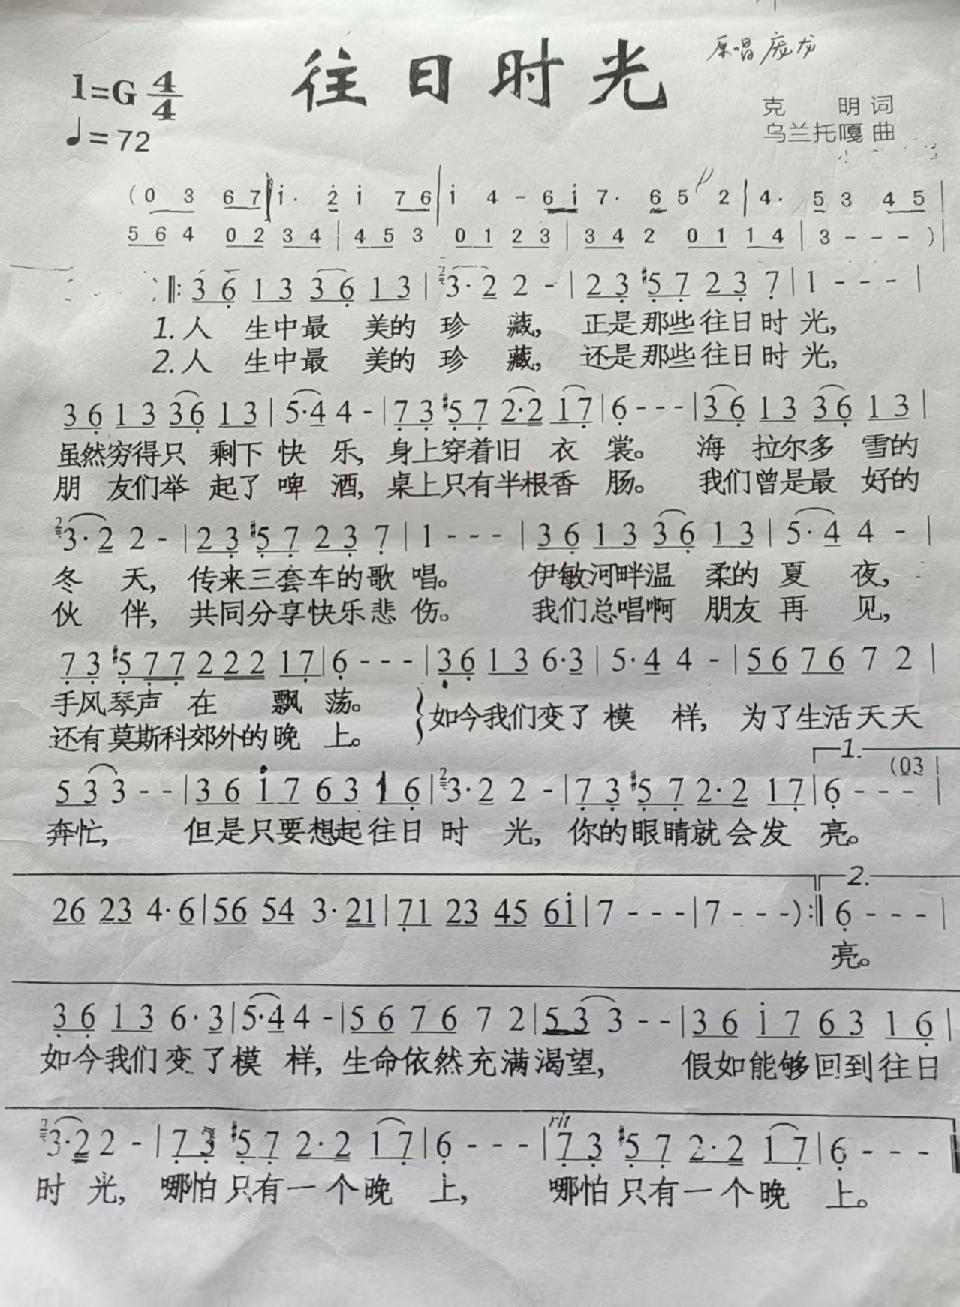 原唱 庞龙
往日时光
1=G 4/4
♩=72
克 明 词
乌兰托嘎 曲
(0 3 6 7 | i· 2 i 7 6 | i 4 - 6 i 7· 6 5 2 | 4· 5 3 4 5 |
5 6 4 0 2 3 4 | 4 5 3 0 1 2 3 | 3 4 2 0 1 1 4 | 3 - - - ) |
‖: 3 6 1 3 3 6 1 3 | 2 3· 2 2 - | 2 3 #5 7 2 3 7 | 1 - - - |
1. 人 生中最 美的 珍 藏, 正是那些往日时 光,
2. 人 生中最 美的 珍 藏, 还是那些往日时 光,
3 6 1 3 3 6 1 3 | 5·4 4 - | 7 3 #5 7 2·2 1 7 | 6 - - - | 3 6 1 3 3 6 1 3 |
虽然穷得只 剩下 快 乐, 身上穿着旧 衣 裳。 海 拉尔多 雪的
朋 友们举 起了 啤 酒, 桌上只有半根香 肠。 我们曾是最 好的
2 3·2 2 - | 2 3 #5 7 2 3 7 | 1 - - - | 3 6 1 3 3 6 1 3 | 5·4 4 - |
冬 天, 传来三套车的歌 唱。 伊敏河畔温 柔的 夏 夜,
伙 伴, 共同分享快乐悲 伤。 我们总唱啊 朋友 再 见,
7 3 #5 7 7 2 2 2 1 7 | 6 - - - | 3 6 1 3 6·3 | 5·4 4 - | 5 6 7 6 7 2 |
手风琴声 在 飘 荡。
如今我们变了 模 样, 为了生活天天
还有莫斯科郊外的晚 上。
1.
(03 |
5 3 3 - - | 3 6 i 7 6 3 1 6 | 2 3·2 2 - | 7 3 #5 7 2·2 1 7 | 6 - - - |
奔忙, 但是只要想起往日 时 光, 你的眼睛就会发 亮。
2.
26 23 4·6 | 56 54 3·21 | 71 23 45 6i | 7 - - - | 7 - - - ) :‖ 6 - - - |
亮。
3 6 1 3 6·3 | 5·4 4 - | 5 6 7 6 7 2 | 5 3 3 - - | 3 6 i 7 6 3 1 6 |
如今我们 变了 模 样, 生命依然充满渴望, 假如能够回到往日
rit
2 3·2 2 - | 7 3 #5 7 2·2 1 7 | 6 - - - | 7 3 #5 7 2·2 1 7 | 6 - - - ‖
时 光, 哪怕只有一个晚 上, 哪怕只有一个晚 上。